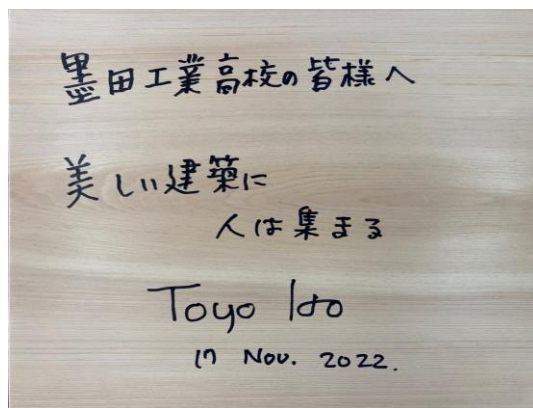 墨田工業高校の皆様へ
美しい建築に
人は集まる
Toyo Ito
17 Nov. 2022.